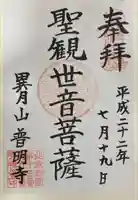 奉拝
平成二十二年
七月十九日
聖観世音菩薩
異月山 普明寺